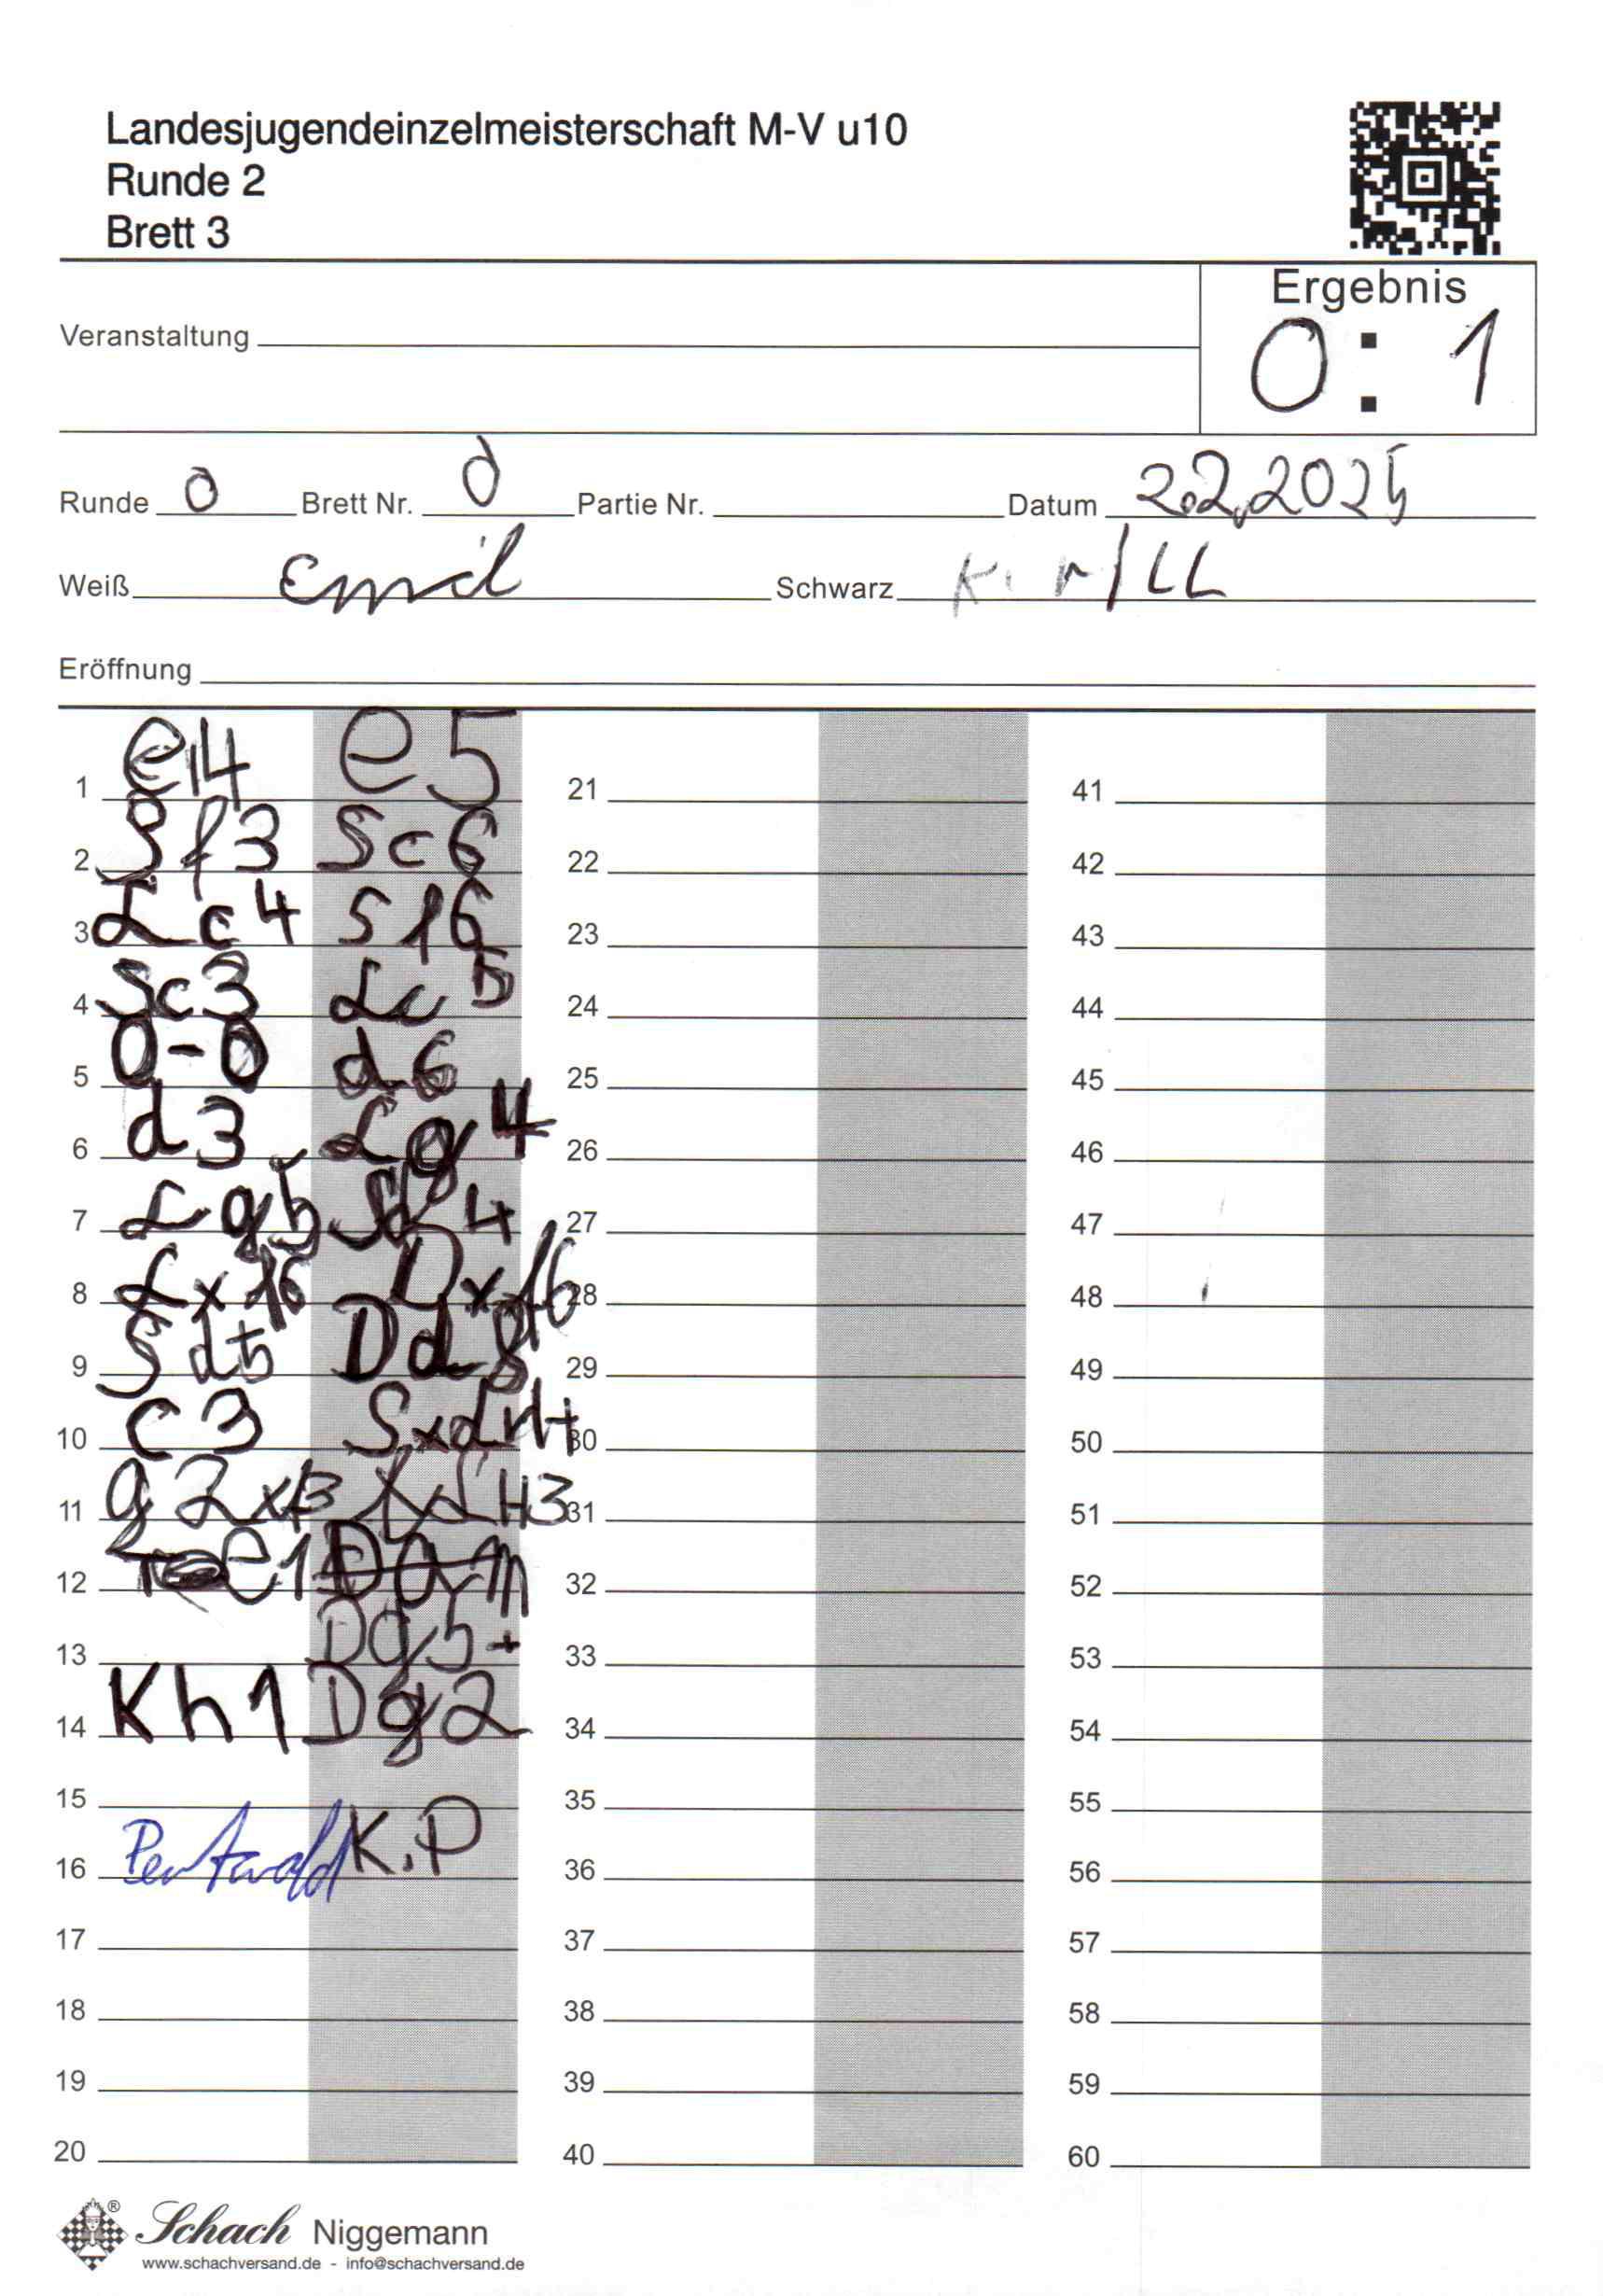 Landesjugendeinzelmeisterschaft M-V u10
Runde 2
Brett 3
Ergebnis
0 : 1
Veranstaltung
Runde 0 Brett Nr. 0 Partie Nr. Datum 2.2.2025
Weiß Emil Schwarz Kirill
Eröffnung
1 e4 e5 21 41
2 Sf3 Sc6 22 42
3 Lc4 Sf6 23 43
4 Sc3 Lc5 24 44
5 0-0 d6 25 45
6 d3 Lg4 26 46
7 Lg5 Sd4 27 47
8 Lxf6 Dxf6 28 48
9 Sd5 Dd8 29 49
10 c3 30 50
11 g2xf3 H3 31 51
12 e1 32 52
13 Dg5+ 33 53
14 Kh1 Dg2 34 54
15 35 55
16 K.P 36 56
17 37 57
18 38 58
19 39 59
20 40 60
Schach Niggemann
www.schachversand.de - info@schachversand.de